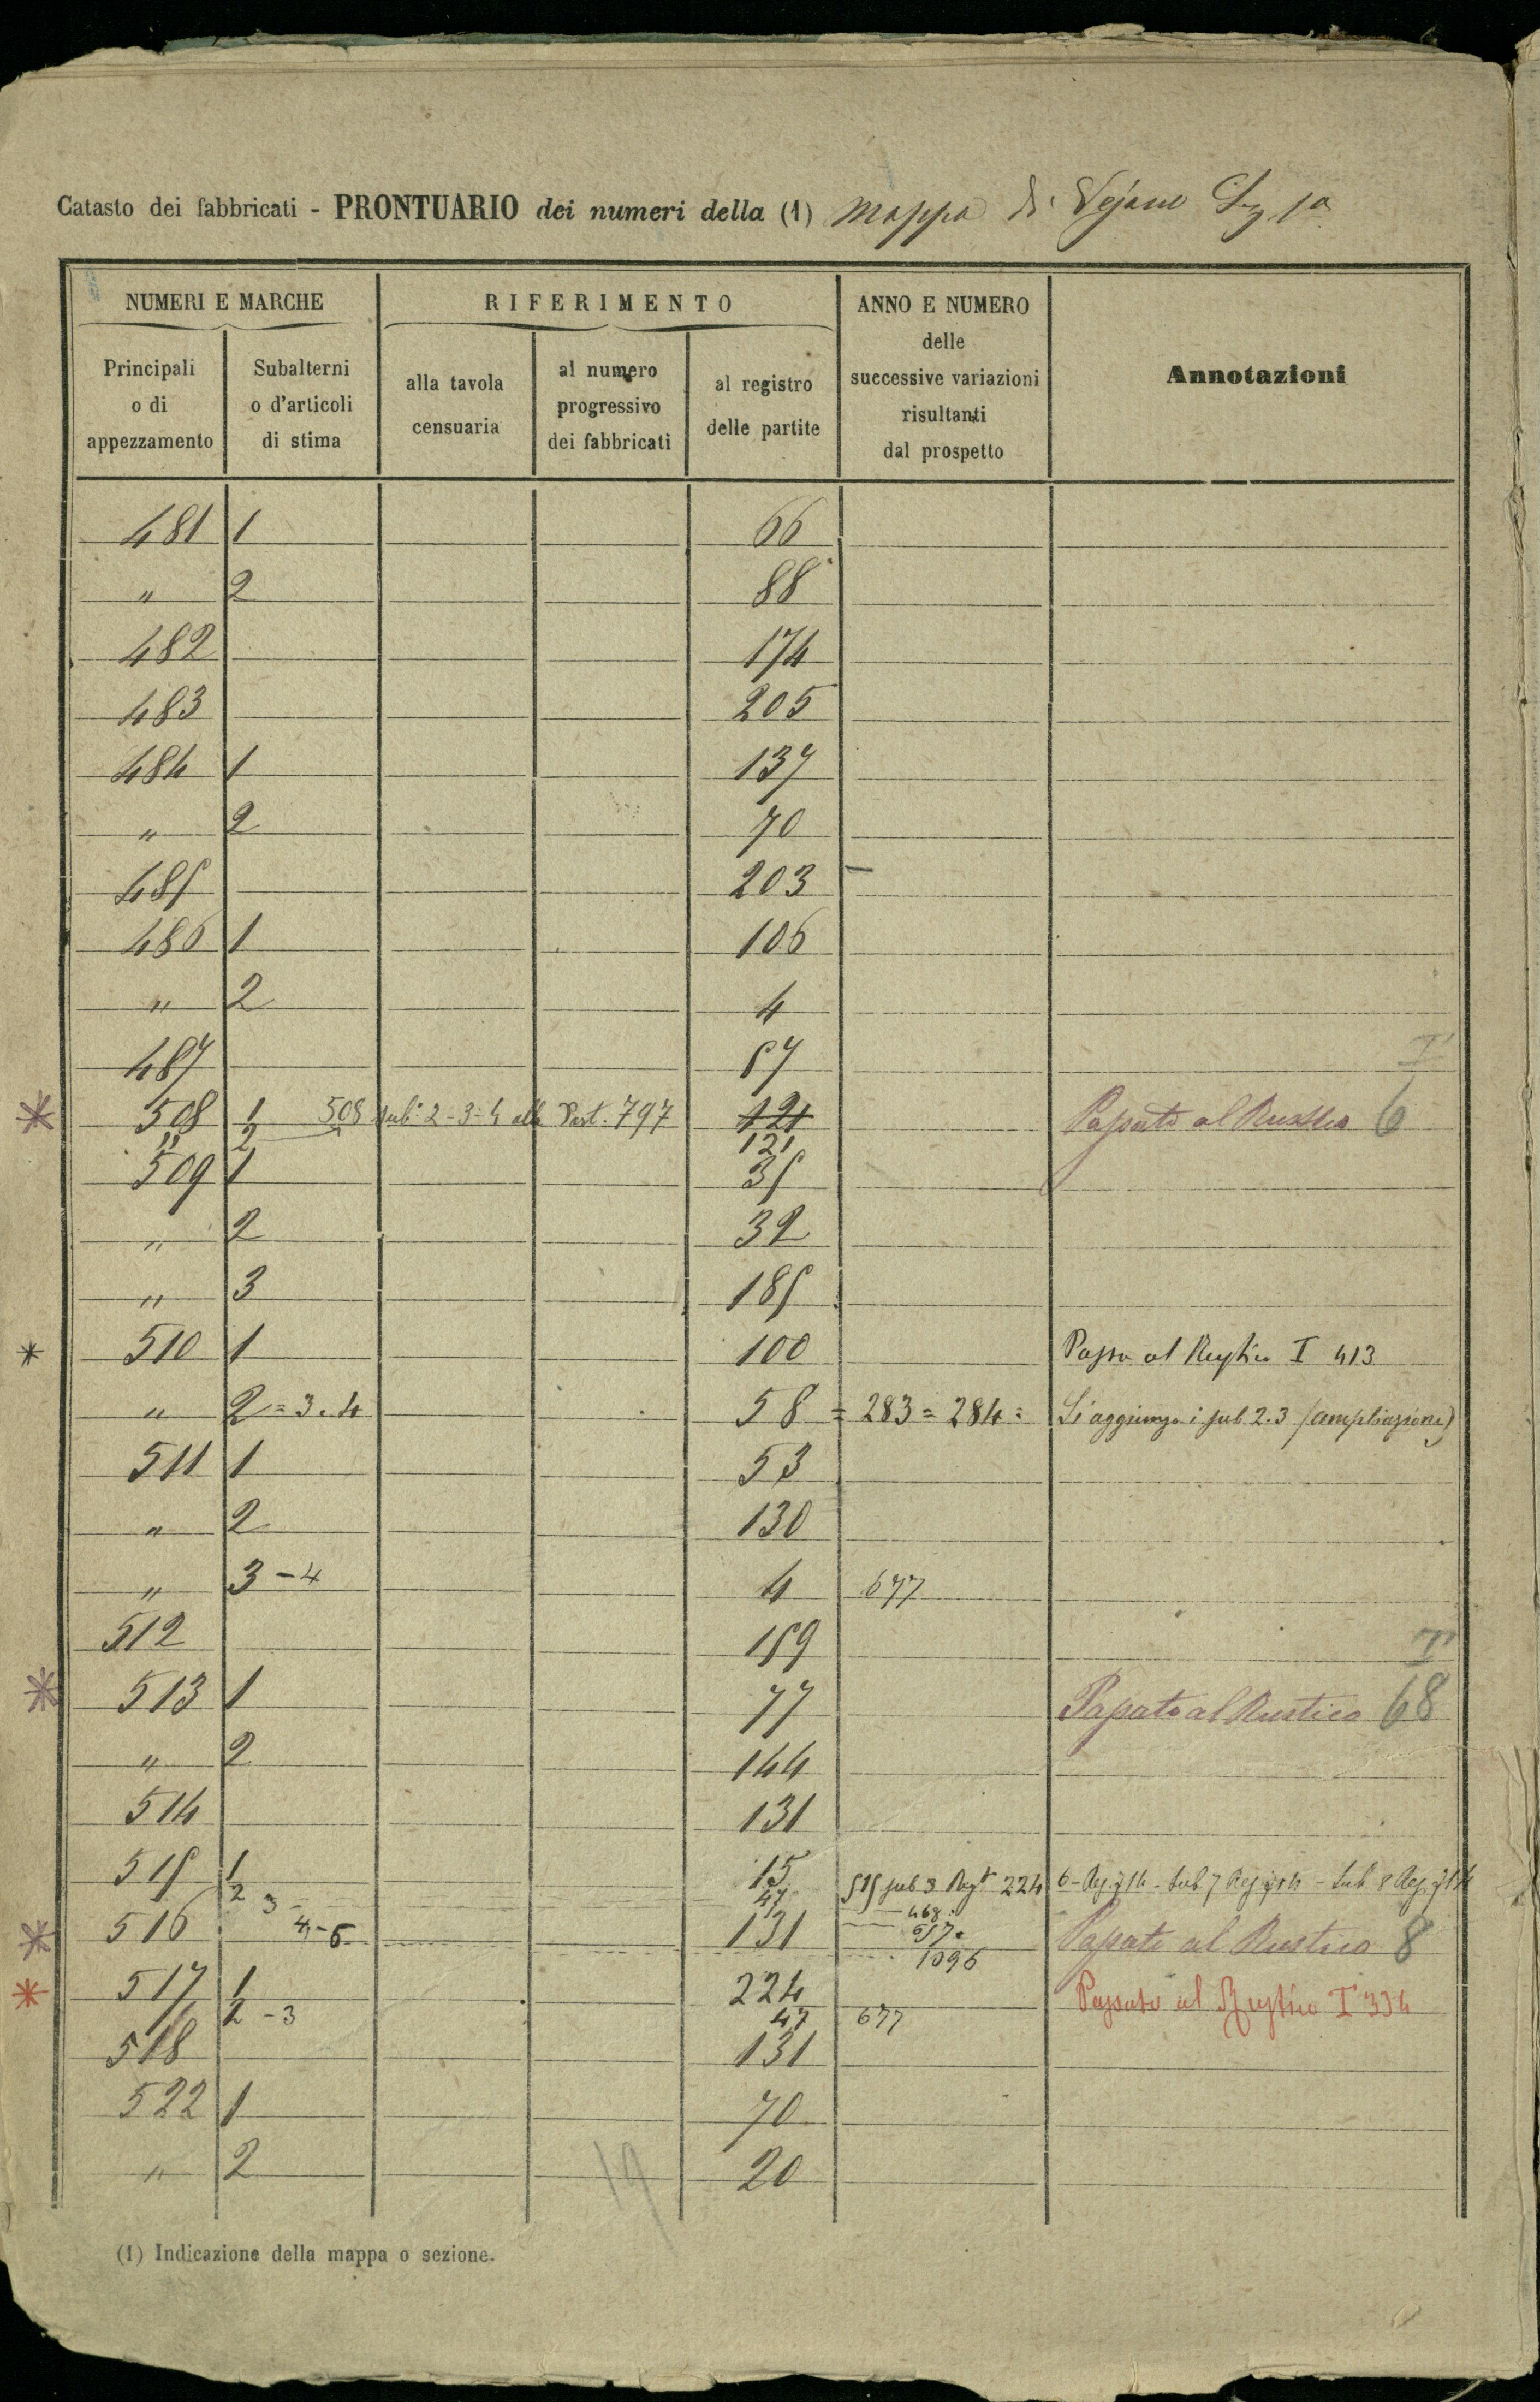 Catasto dei fabbricati - PRONTUARIO dei numeri della (1) Mappa di Vejano Sez. 1a
NUMERI E MARCHE
Principali o di appezzamento
Subalterni o d'articoli di stima
RIFERIMENTO
alla tavola censuaria
al numero progressivo dei fabbricati
al registro delle partite
ANNO E NUMERO delle successive variazioni risultanti dal prospetto
Annotazioni
481 1 66
" 2 88
482 174
483 205
484 1 137
" 2 70
485 203
486 1 106
" 2 4
487 57
I
508 1 508 sub. 2-3-4 alla Part. 797 121 Passato al Rustico 6
" 2 121
509 1 35
" 2 32
" 3 185
510 1 100 Passa al Rustico I 413
" 2=3.4 58 = 283 = 284 = Si aggiunge i sub. 2.3 (ampliazione)
511 1 53
" 2 130
" 3-4 4 677
512 159
I
513 1 77 Passato al Rustico 68
" 2 144
514 131
515 1 15 515 sub 3 224
2 3 47 468
516 4-5 131 Passato al Rustico 8
1096
517 1 224 Passato al Rustico I 334
2-3 47 677
518 131
522 1 70
" 2 20
19
(1) Indicazione della mappa o sezione.